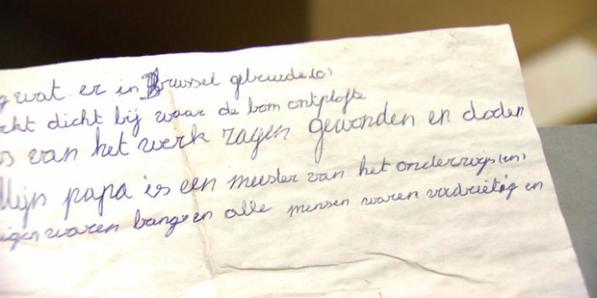 wat er in Brussel gebeurde
dicht bij waar de bom ontplofte
van het werk zagen gewonden en doden
Mijn papa is een meester van het onderwijs
waren bang en alle mensen waren verdrietig en